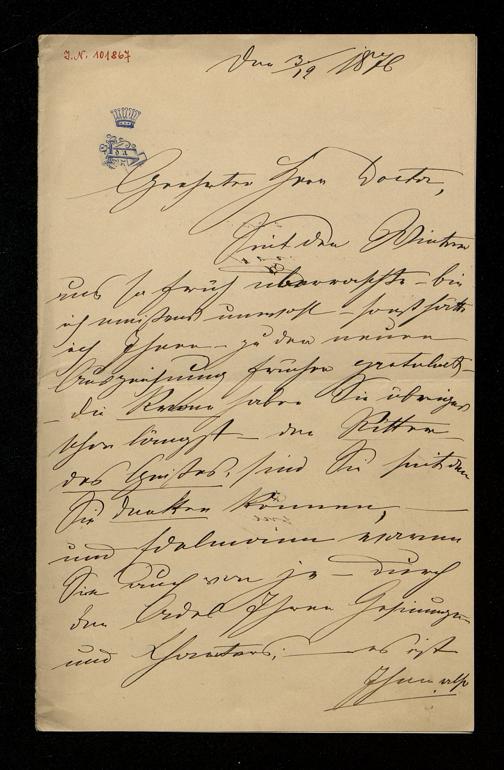 I.N. 101867
Den 3/12 1876
Geehrter Herr Doctor,
Seit der Winter
uns so früh überraschte – bin
ich meistens unwohl – sonst hätte
ich Ihnen – zu der neuen
Auszeichnung früher gratulirt –
– die Krone haben Sie übrigens
schon längst – der Ritter
des Geistes, sind Sie seitdem
Sie denken können, —
und Edelmann waren
Sie auch von je – durch
den Adel Ihrer Gesinnungen
und Charters; — es ist
Ihnen also